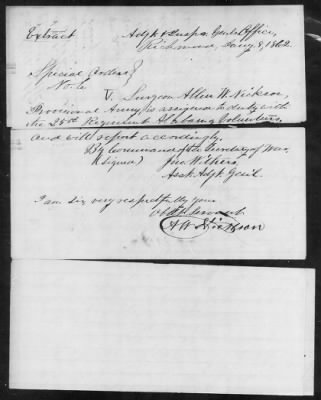 Extract Adjt & Inspr. Genls Office,
Richmond, Jany 8, 1862.
Special Orders
No. 6
V. Surgeon Allen W. Nickson,
Provisional Army is assigned to duty with
the 25th Regiment Alabama Volunteers,
and will report accordingly.
By Command of the Secretary of War.
(Signed) Jno. Withers,
Asst. Adjt. Genl.
I am sir very respectfully your
Obt. Servant.
A W Nickson